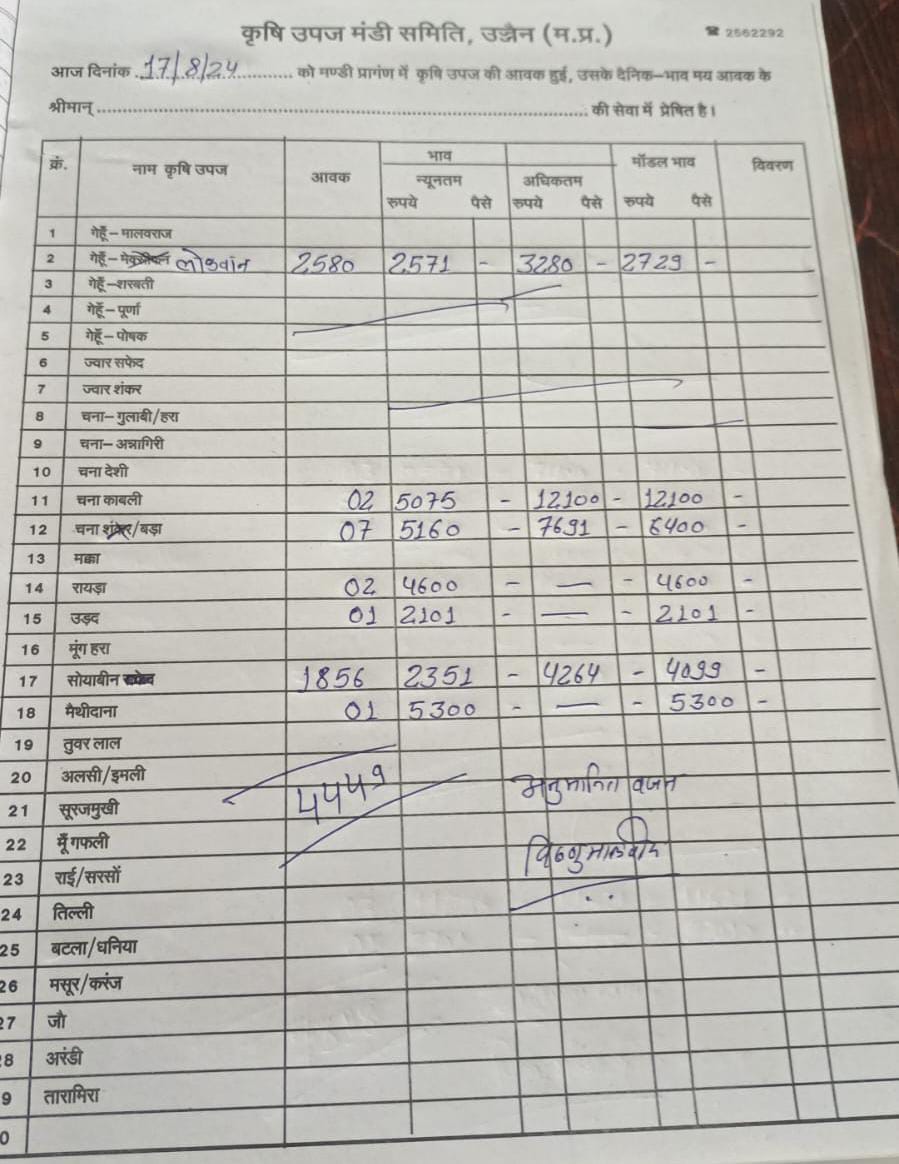 कृषि उपज मंडी समिति, उज्जैन (म.प्र.) ☎ 2562292
आज दिनांक 17/8/24 को मण्डी प्रागंण में कृषि उपज की आवक हुई, उसके दैनिक-भाव मय आवक के
श्रीमान् की सेवा में प्रेषित है।
क्रं. नाम कृषि उपज आवक भाव मॉडल भाव विवरण
न्यूनतम अधिकतम
रुपये पैसे रुपये पैसे रुपये पैसे
1 गेहूँ-मालवराज
2 गेहूँ- लोकवांन 2580 2571 - 3280 - 2729 -
3 गेहूँ-शरबती
4 गेहूँ-पूर्णा
5 गेहूँ-पोषक
6 ज्वार सफेद
7 ज्वार शंकर
8 चना-गुलाबी/हरा
9 चना-अन्नागिरी
10 चना देशी
11 चना काबली 02 5075 - 12100 - 12100 -
12 चना शंकर/बड़ा 07 5160 - 7691 - 6400 -
13 मक्का
14 रायड़ा 02 4600 - — - 4600 -
15 उड़द 01 2101 - — - 2101 -
16 मूंग हरा
17 सोयाबीन 1856 2351 - 4264 - 4099 -
18 मैथीदाना 01 5300 - — - 5300 -
19 तुवर लाल
20 अलसी/इमली
21 सूरजमुखी 4449 अनुमानित वजन
22 मूँगफली
23 राई/सरसों
24 तिल्ली
25 बटला/धनिया
26 मसूर/करंज
27 जौ
8 अरंडी
9 तारामिरा
0